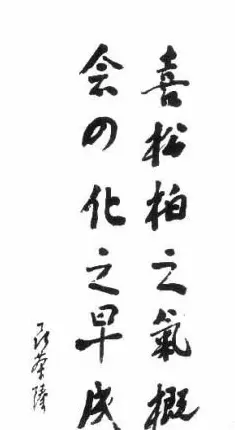 喜松柏之氣概
会の化之早成